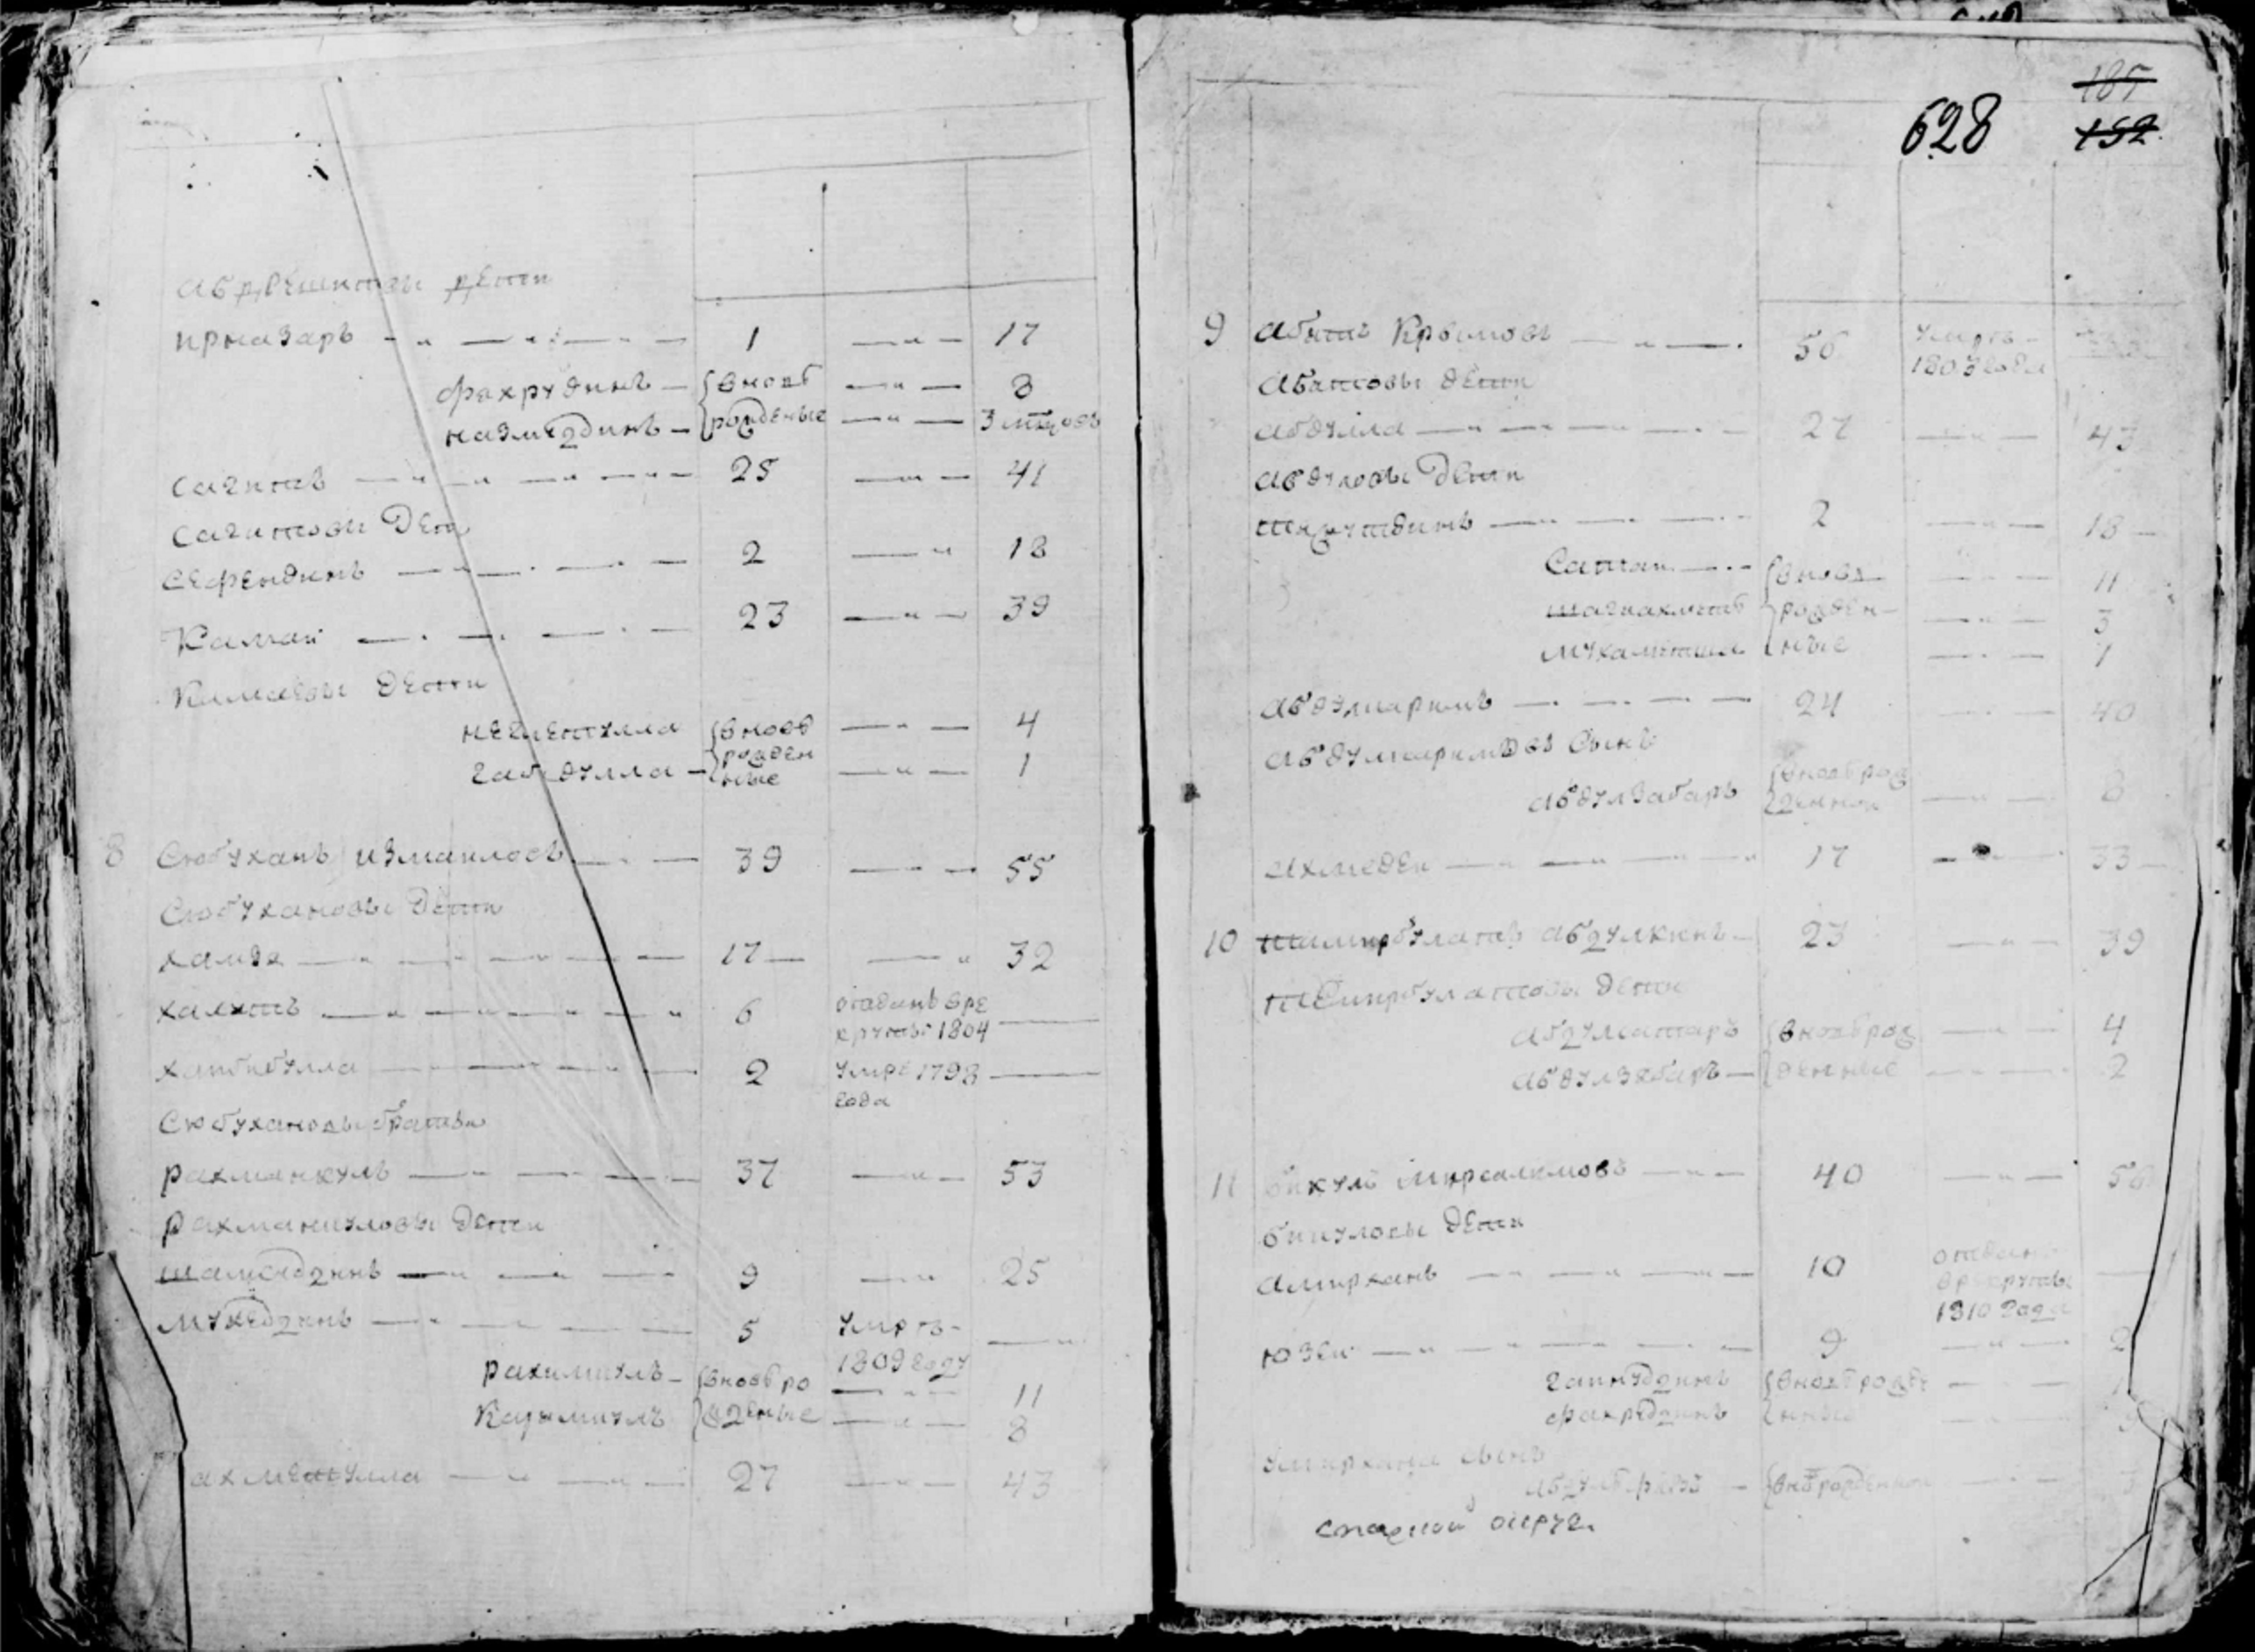 Абдрешитовы дети
ирназаръ 1 17
фахрудинъ вновь 8
назмедзинъ рожденые 3 мцовъ
сагитъ 25 41
сагитовы дети
сефендинъ 2 18
Камаи 23 39
Камаевы дети
негметулла вновь 4
габдулла рожден 1
ные
8 Сюбуханъ измаиловъ 39 55
Сюбухановы дети
хамза 17 32
халитъ 6 отданъ вре
круты 1804
хабибулла 2 умре 1798
года
Сюбухановы братьи
рахманкулъ 37 53
рахманкуловы дети
шамседзинъ 9 25
мухедзинъ 5 умръ
1809 году
рахимкулъ вновь ро 11
Карымкулъ жденые 8
ахметулла 27 43
185
628 152
9 Абитъ Крымовъ 56 умръ
1803 года
Абитовы дети
абдулла 27 43
Абдуловы дети
2 18
Саттаи вновь 11
шагиахметъ рожден 3
мухаметша ные 1
абдулкаримъ 24 40
абдулкаримовъ сынъ
абдулзабаръ вновь рож 8
денныи
ахмедеи 17 33
10 темирбулатъ абзулкинъ 23 39
темирбулатовы дети
абзулсатаръ вновь рож 4
абдулзабаръ денные 2
11 бикулъ мирсалимовъ 40 56
бикуловы дети
амирханъ 10 отданъ
вр круты
1810 года
юзеи 9
гаинудзинъ вновь рожде
фахрудзинъ нные
амирхана сынъ
вновь рожденныи
округи